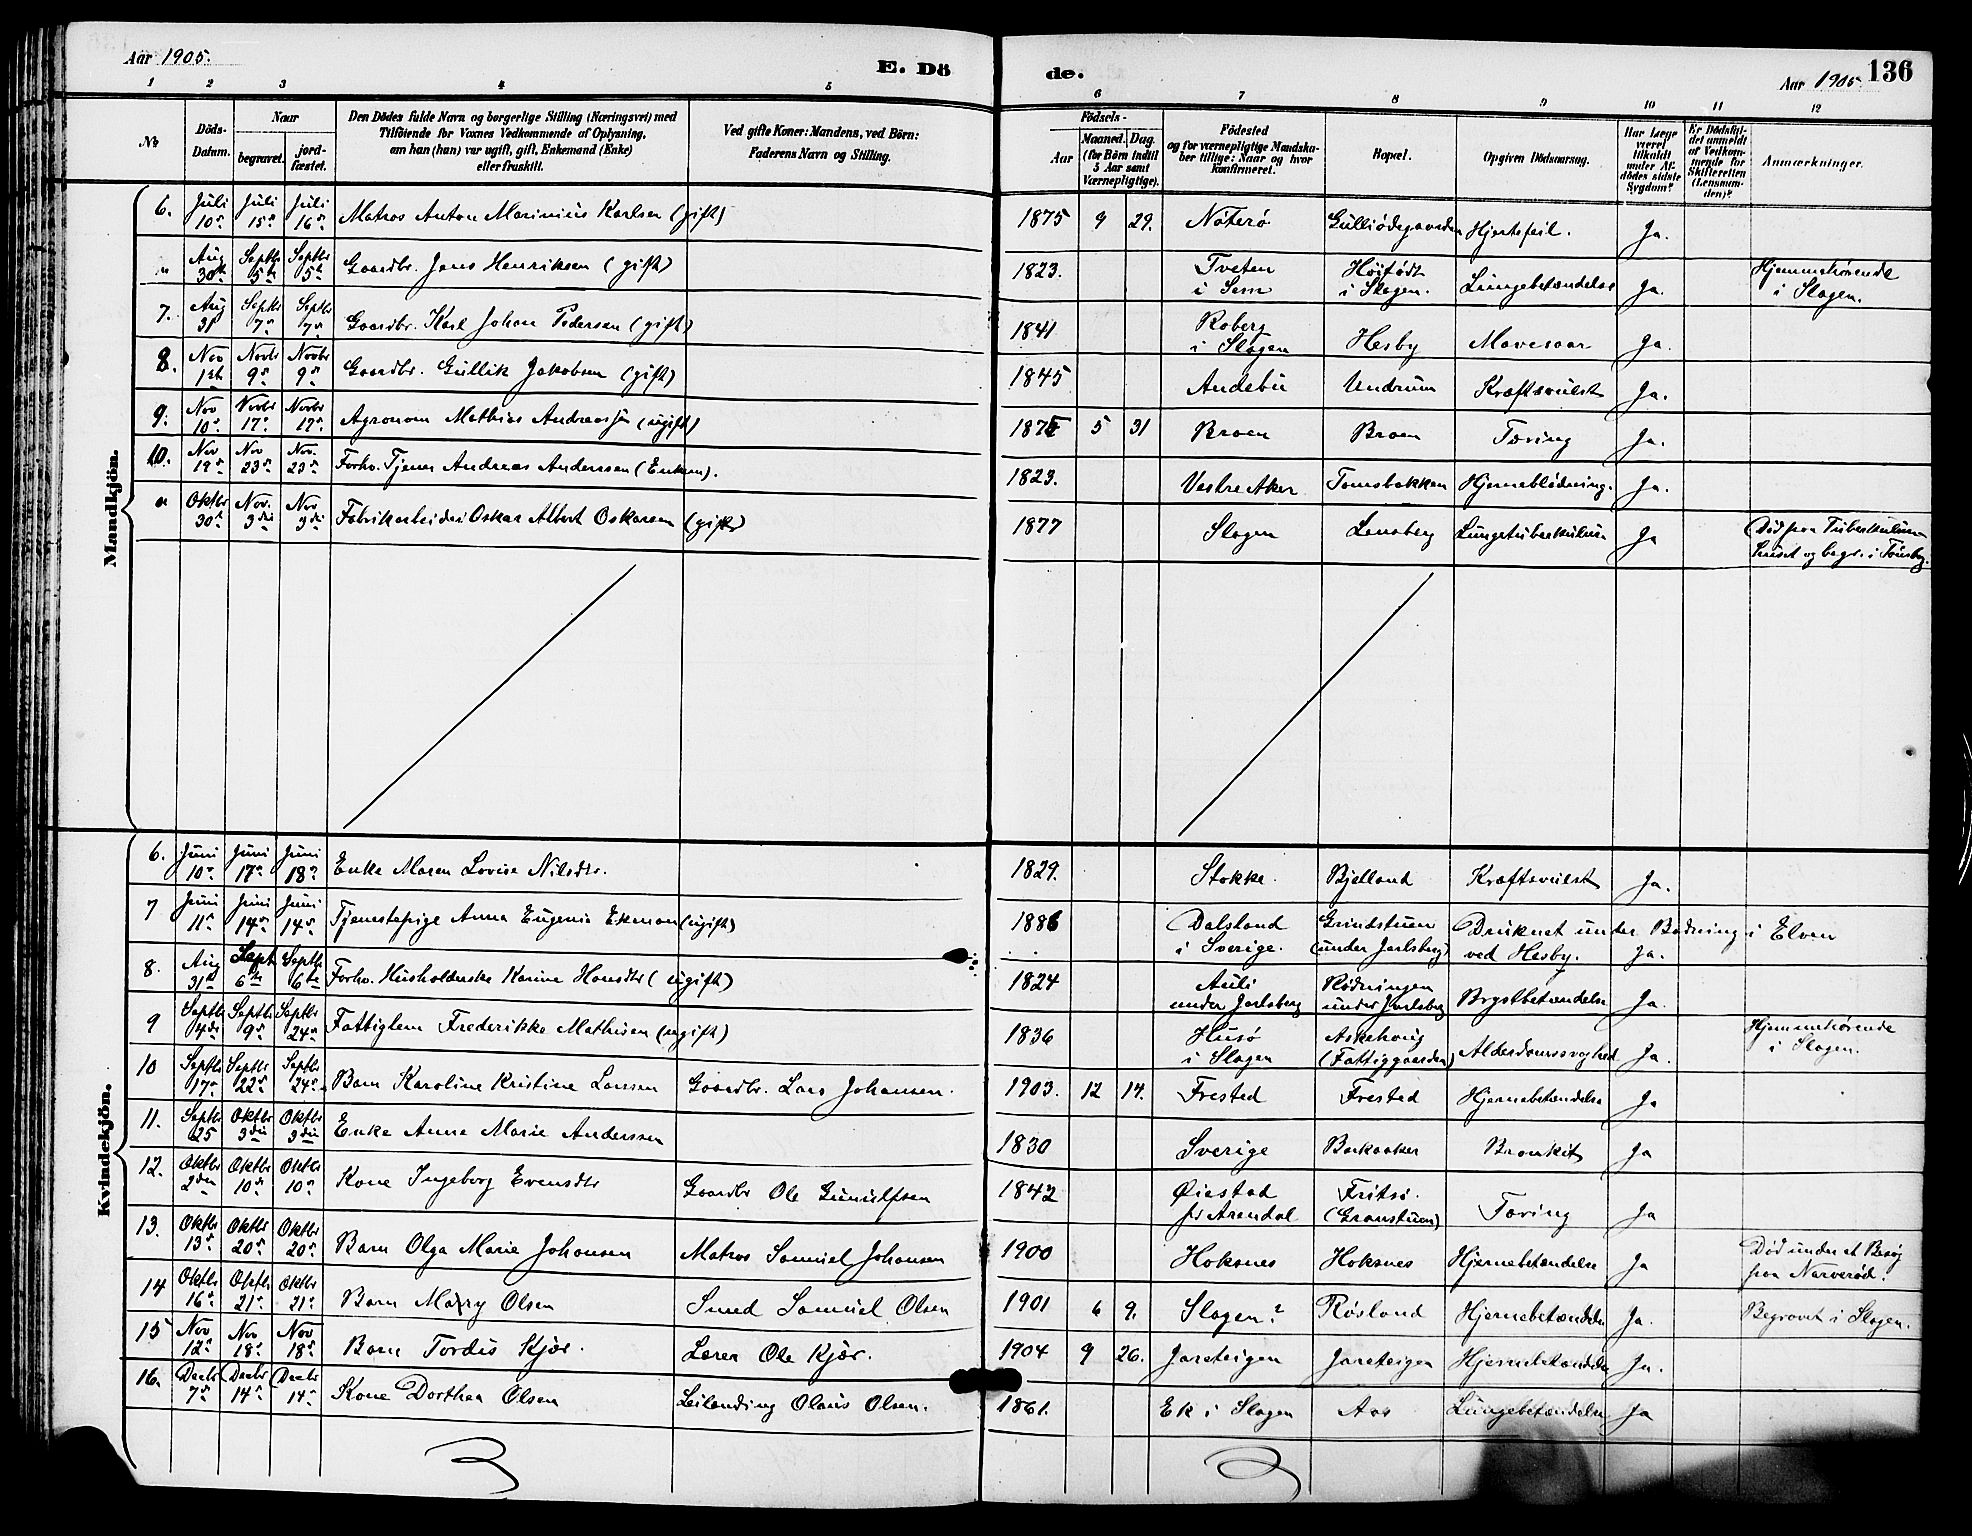 Aar 1905.
E. Dö
de.
Aar 1905.
136
1 2 3 4 5
6 7 8 9 10 11 12
No
Döds-
Datum.
Naar
begravet.
jord-
fæstet.
Den Dödes fulde Navn og borgerlige Stilling (Næringsvei) med
Tilföiende for Voxnes Vedkommende af Oplysning,
om han (hun) var ugift, gift, Enkemand (Enke)
eller fraskilt.
Ved gifte Koner: Mandens, ved Börn:
Faderens Navn og Stilling.
Födsels-
Aar
Maaned.
Dag.
(for Börn indtil
5 Aar samt
Værnepligtige).
Födested
og for værnepligtige Mandska-
ber tillige: Naar og hvor
konfirmeret.
Bopæl.
Opgiven Dödsaarsag.
Har Læge
været
tilkaldt
under Af-
dödes sidste
Sygdom?
Er Dödsfal-
det anmeldt
af Vedkom-
mende for
Skifteretten
(Lensman-
den)?
Anmærkninger.
Mandkjön.
6. Juli 10de Juli 15de Juli 16de Matros Anton Marinius Karlsen (gift) 1875 9 29. Nøterø Hjertefeil. Ja.
" Aug 30te Septbr 5te Septbr 5te Gaardbr. Jens Henriksen (gift) 1823. Tveten i Sem Høitødt i Slagen. Lungebetændelse Ja. Hjemmehørende i Slagen.
7. Aug 31 Septbr 7de Septbr 7de Gaardbr. Karl Johan Pedersen (gift) 1841 Roberg i Slagen Hesby Mavesaar Ja.
8. Nov 1ste Novbr 9de Novbr 9de Gaardbr. Gullik Jakobsen (gift) 1845 Andebu Undrum Kræftsvulst Ja.
9. Nov 10de Novbr 17de Novbr 17de Agronom Mathias Andreassen (ugift) 5 31 Broen Broen Tæring Ja.
10. Nov 19de Nov 23de Nov. 23de Forhv. Tjener Andreas Anderssen (Enkem). 1823. Vestre Aker Tomsbakken Hjerneblödning. Ja.
" Oktbr 30te Nov. 3die Nov 3die Fabrikarbeider Oskar Albert Oskarsen (gift) 1877 Slagen Lensberg Lungetuberkulose Ja Død paa Tuberkulose- huset og begr. i Tönsberg.
Kvindekjön.
6. Juni 10de Juni 17de Juni 18de Enke Maren Lovise Nilsdtr. 1829. Stokke. Bjelland Kræftsvulst Ja.
7 Juni 11te Juni 14de Juni 14de Tjenestepige Anna Eugenia Ekman (ugift) 1886 Dalsland i Sverige. Grindstuen (under Jarlsberg) Druknet under Badning i Elven ved Hesby. Ja.
8. Aug 31te Sept 6te Septbr 6te Forhv. Husholderske Karine Hansdtr (ugift) 1824 Auli under Jarlsberg Rødningen under Jarlsberg Brystbetændelse Ja.
9 Septbr 4de Septbr 9de Septbr 24de Fattiglem Frederikke Mathisen (ugift) 1836 Husø i Slagen Askehaug (Fattiggaarden) Alderdomssvaghed Ja. Hjemmehørende i Slagen.
10 Septbr 17de Septbr 22de Septbr 24de Barn Karoline Kristine Larsen Gaardbr. Lars Johansen. 1903. 12 14. Frested Frested Hjernebetændelse Ja
11. Septbr 25 Oktbr 3die Oktbr 3die Enke Anne Marie Anderssen 1830 Sverige Barkaaker Bronkit Ja
12. Oktbr 2den Oktbr 10de Oktbr 10de Kone Ingeborg Evensdtr Gaardbr Ole Gunulfsen 1842 Øiestad pr Arendal Fritsø. (Granstuen) Tæring Ja
13. Oktbr 13de Oktbr 20de Oktbr 20de Barn Olga Marie Johansen Matros Samuel Johansen 1900 Hoksnes Hoksnes Hjernebetændelse Ja Død under et Besøg paa Narverød.
14 Oktbr 16de Oktbr 21de Oktbr 21de Barn Mary Olsen Smed Samuel Olsen 1901 6 9. Slagen? Røsland Hjernebetændelse Ja. Begravet i Slagen.
15 Nov 12te Nov 18de Nov 18de Barn Tordis Kjær. Lærer Ole Kjær. 1904 9 26. Jareteigen Jareteigen Hjernebetændelse Ja.
16. Decbr 7de Decbr 14de Decbr 14de Kone Dorthea Olsen Leilending Olaus Olsen. 1861. Ek i Slagen Aas Lungebetændelse Ja